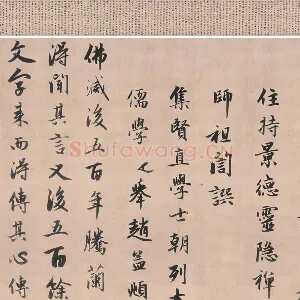 住持景德靈隐禪
師祖誾譔
集賢直學士朝列大
儒學
舉趙孟頫
佛滅後五百年騰蘭
得聞其言又後五百餘
文字來而得傳其心傳
Shufawang.cn